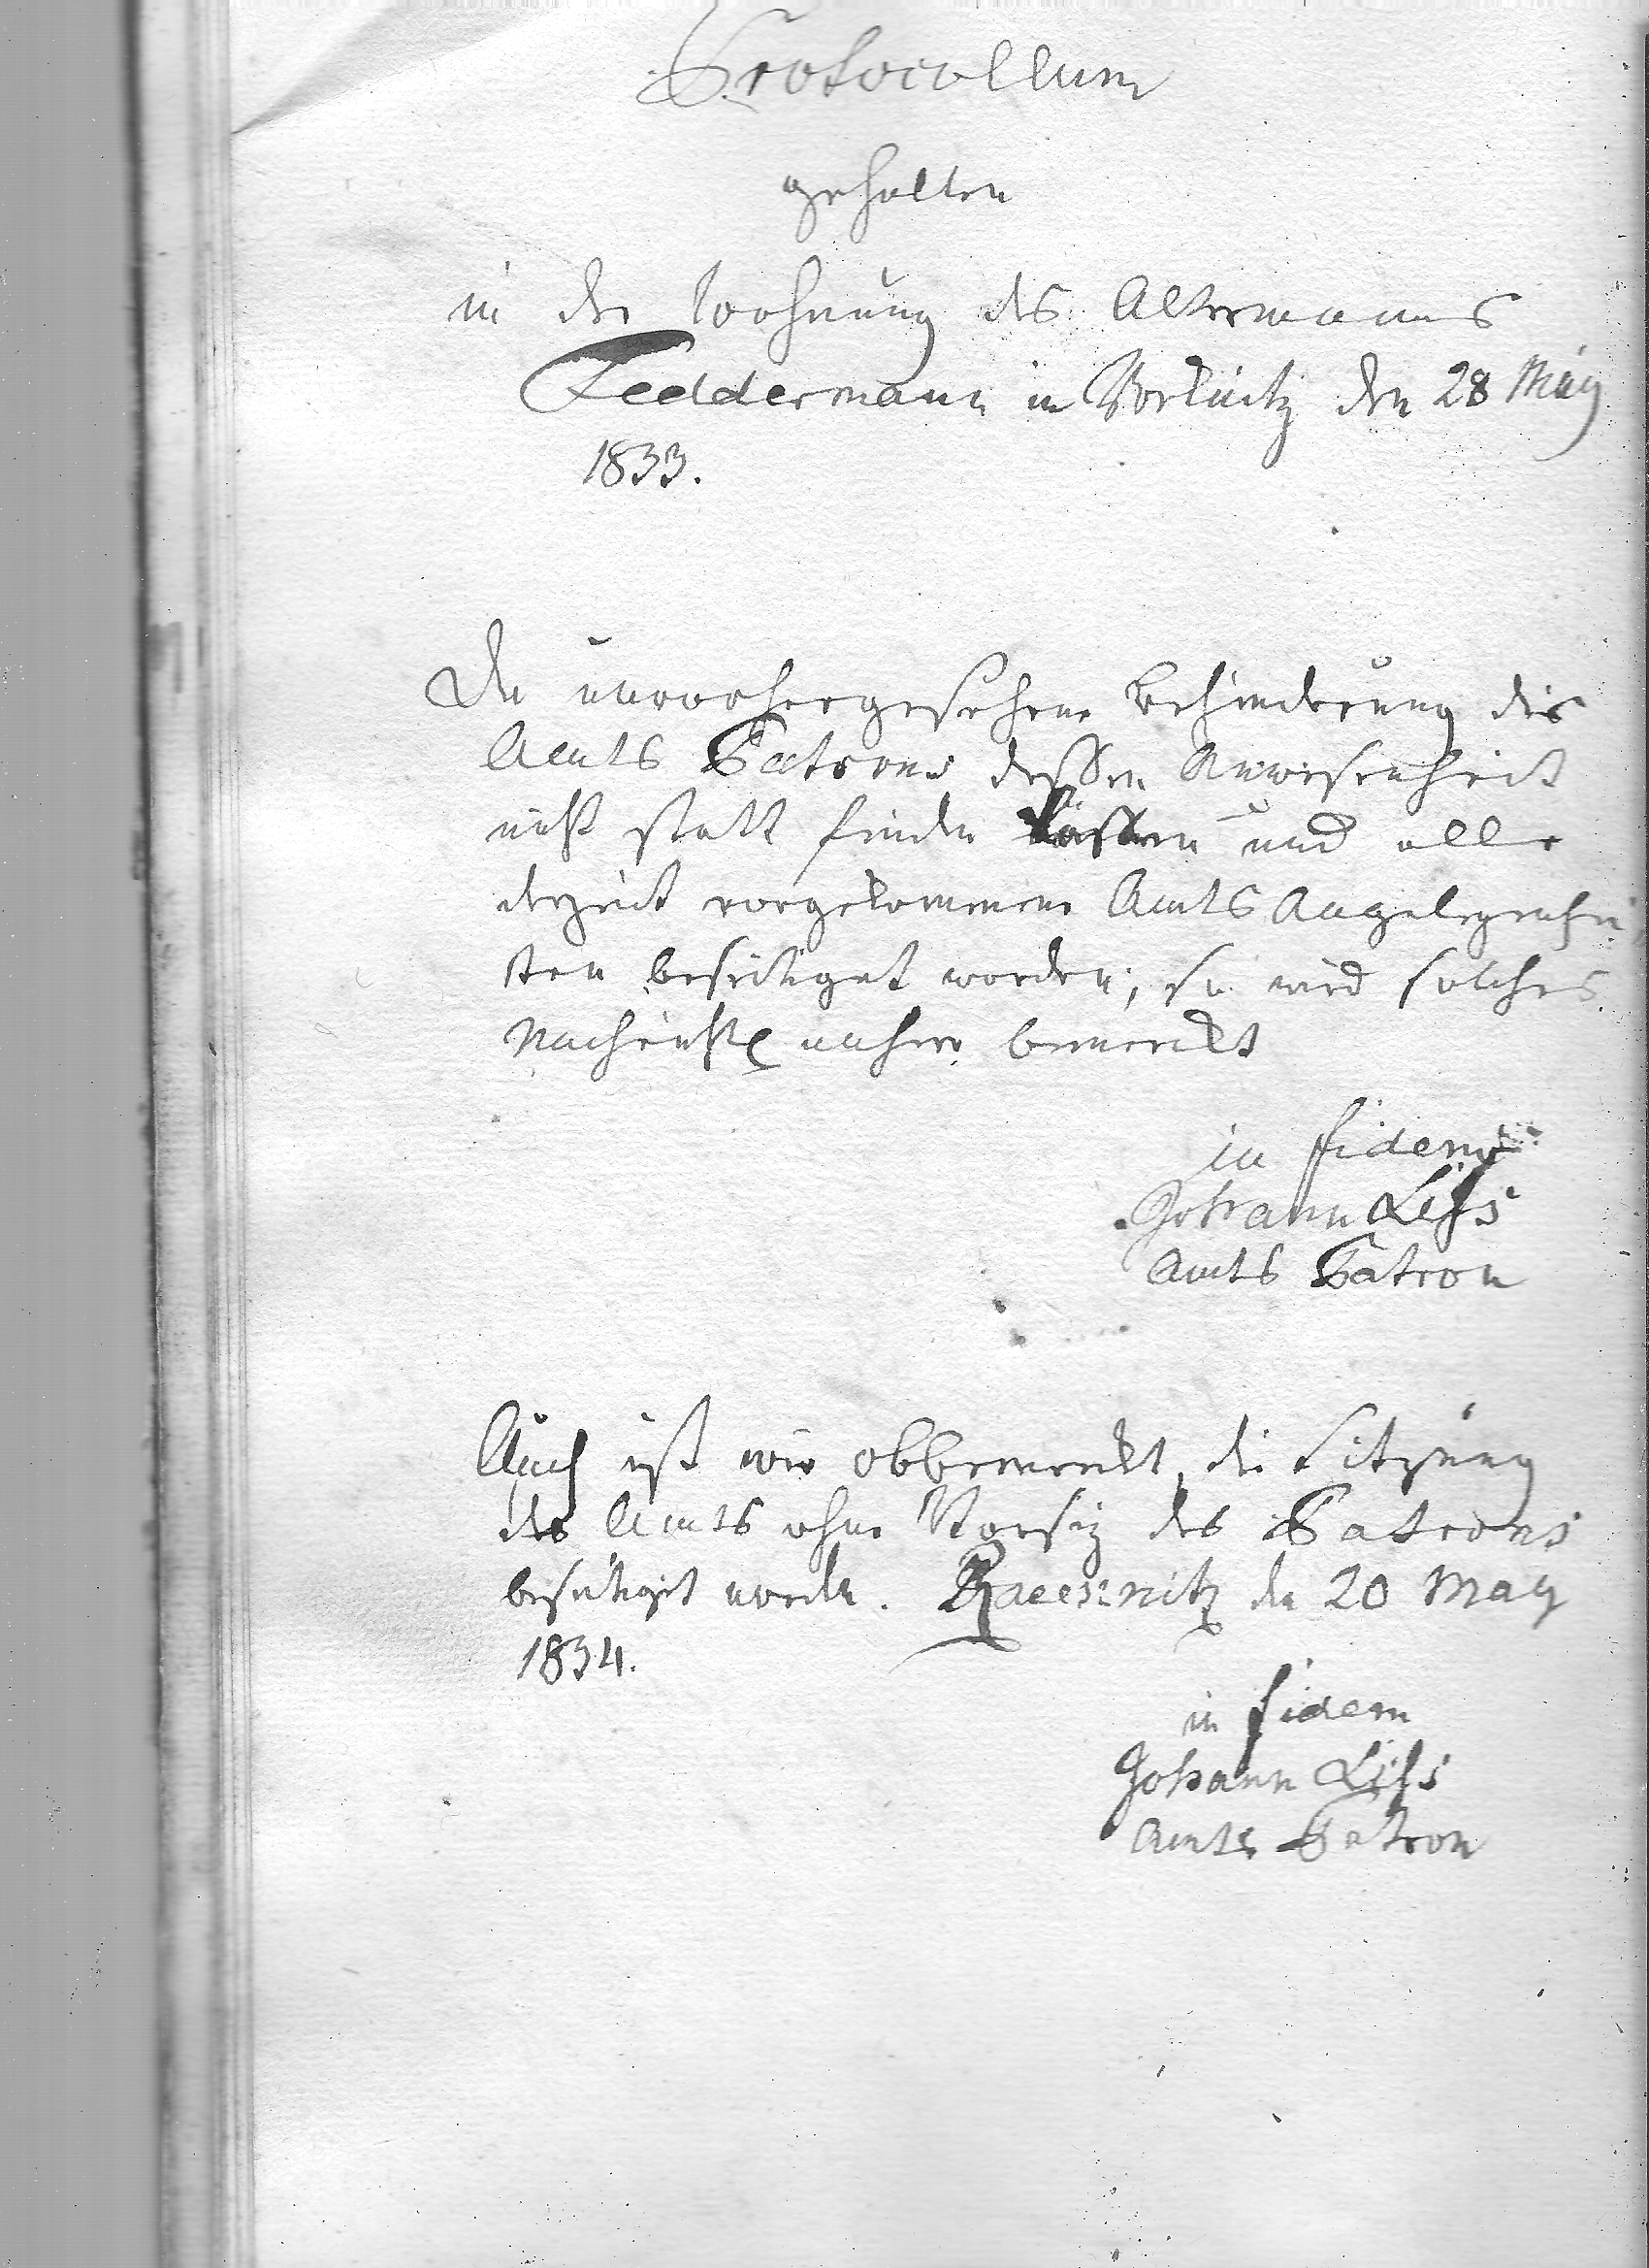 Protocollum
gehalten
in der Wohnung des Altermanns
Feddermann in den 28 May
1833.
Da unvorhergesehene Behinderung des
Amts Patrons dessen Anwesenheit
nicht statt finden lassen und alle
derzeit vorgekommene Amts Angelegenhei
ten beseitiget worden, so wird solches
bemerckt
in fidem
Johann
Amts Patron
Auch ist wie obbemerckt, die Sitzung
des Amts ohne Vorsitz des Patrons
beseitiget worden. den 20 May
1834.
in fidem
Johann
Amts Patron